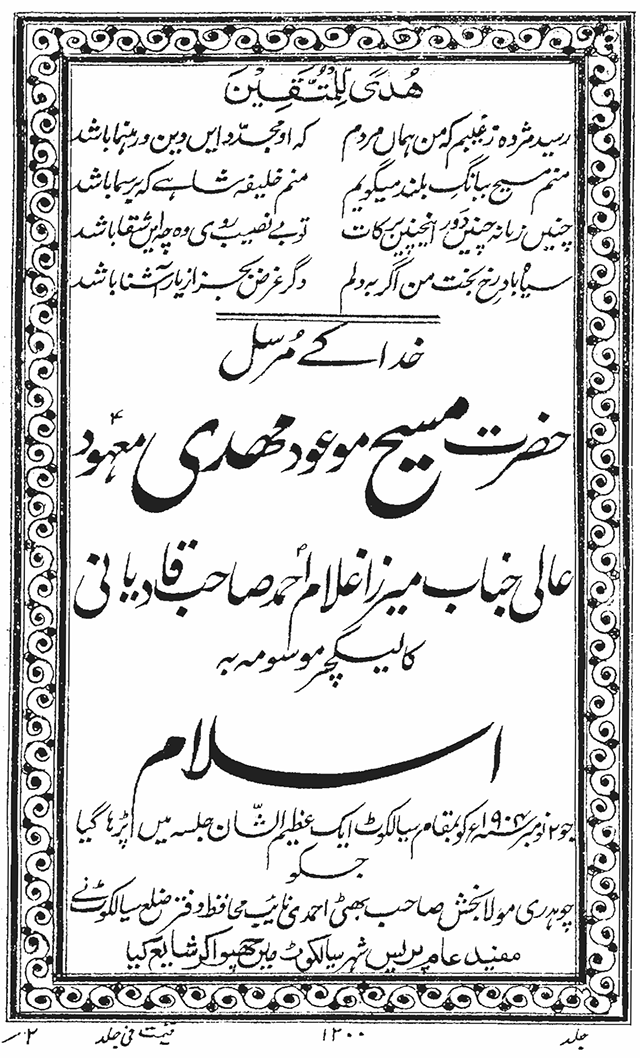 ھُدًی لِّلْمُتَّقِیْنَ
رسید مژدہ زغیبم کہ من ہماں مردم کہ او مجدّد ایں دین و رہنما باشد
منم مسیح ببانگِ بلند میگویم منم خلیفہ شاہے کہ برسما باشد
چنیں زمانہ چنیں دور ایں چنیں برکات تو بے نصیب روی وہ چہ ایں شقا باشد
سیاہ باد رخِ بخت من اگر بہ دلم دگر غرض بجز از یار آشنا باشد
خدا کے مُرسل
حضرت مسیح موعود مھدی معہود ؑ
عالی جناب میرزا غلام احمدؑ صاحب قادیانی
کا لیکچر موسومہ بہ
اسلام
جو ۲ نومبر ۱۹۰۴ء کو بمقام سیالکوٹ ایک عظیم الشّان جلسہ میں پڑہا گیا
جسکو
چوہدری مولا بخش صاحب بھٹی احمدی نائب محافظ دفتر ضلع سیالکوٹ نے
مفید عام پریس شہر سیالکوٹ میں چھپوا کر شایع کیا
جلد ۱۲۰۰ قیمت فی جلد ۲؍